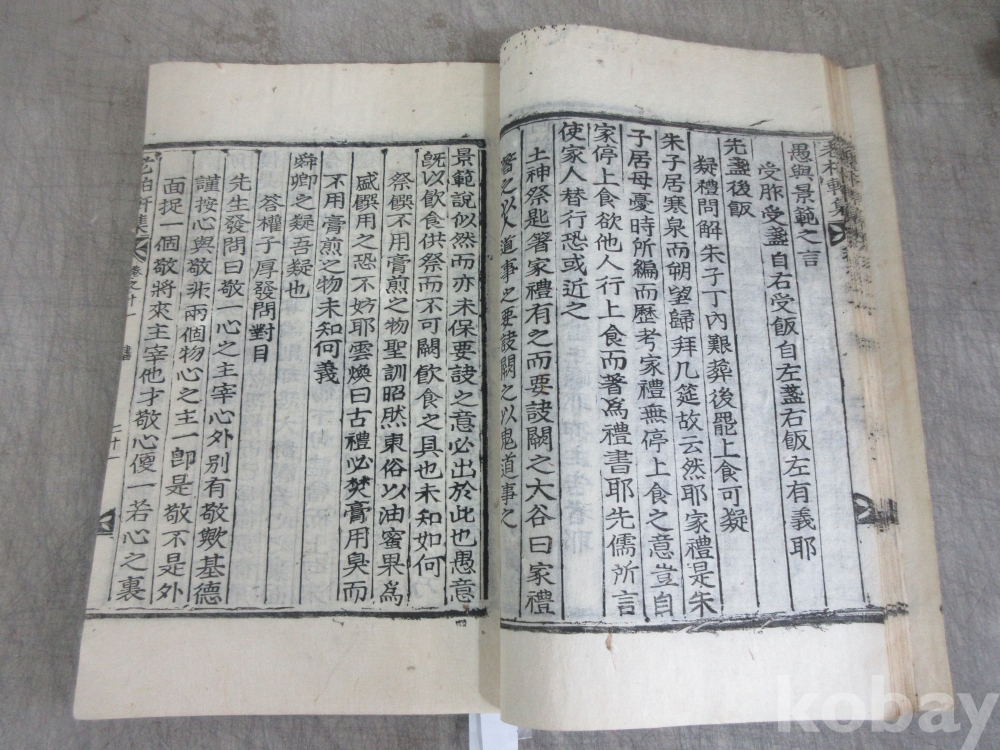 愚與景範之言
受胙受盞自右受飯自左盞右飯左有義耶
先盞後飯
疑禮問解朱子丁內艱葬後罷上食可疑
朱子居寒泉而朔望歸拜几筵故云然耶家禮是朱
子居母憂時所編而歷考家禮無停上食之意豈自
家停上食欲他人行上食而著爲禮書耶先儒所言
使家人替行恐或近之
土神祭匙箸家禮有之而要訣闕之大谷曰家禮
箸之以人道事之要訣闕之以鬼道事之
景範說似然而亦未保要訣之意必出於此也愚意
旣以飮食供祭而不可闕飮食之具也未知如何
祭饌不用膏煎之物聖訓昭然東俗以油蜜果爲
盛饌用之恐不妨耶雲煥曰古禮必焚膏用臭而
不用膏煎之物未知何義
舜卿之疑吾疑也
答權子厚發問對目
先生發問曰敬一心之主宰心外別有敬歟基德
謹按心與敬非兩個物心之主一卽是敬不是外
面捉一個敬將來主宰他才敬心便一若心之裏
老柏軒集 卷之十一 二十一
kobay